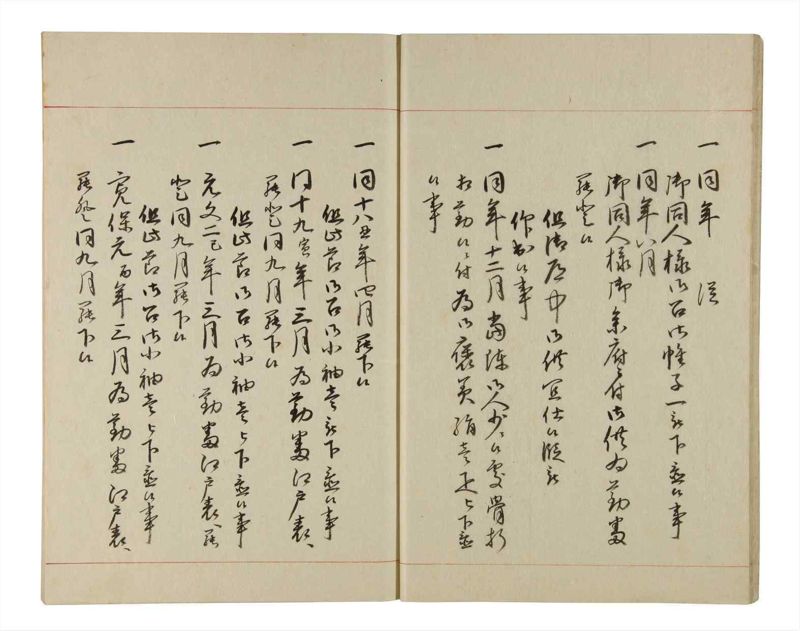 一同年
御同人様御召御帷子一被下置候事
一同年八月
御同人様御参府ニ付御供為勤番
罷登候
但御道中御供
仕候段
作出候事
一同年十二月
御人少ニ候処骨折
相勤候ニ付為御褒美
被下置
候事
一同十八丑年四月罷下候
但此節御召御小袖壱被下置候事
一同十九寅年三月為勤番江戸表江
罷登同九月罷下候
但此節御召御小袖壱被下置候事
一元文二巳年三月為勤番江戸表江罷
登同九月罷下候
但此節御召御小袖壱被下置候事
一寛保元酉年三月為勤番江戸表江
罷登同九月罷下候